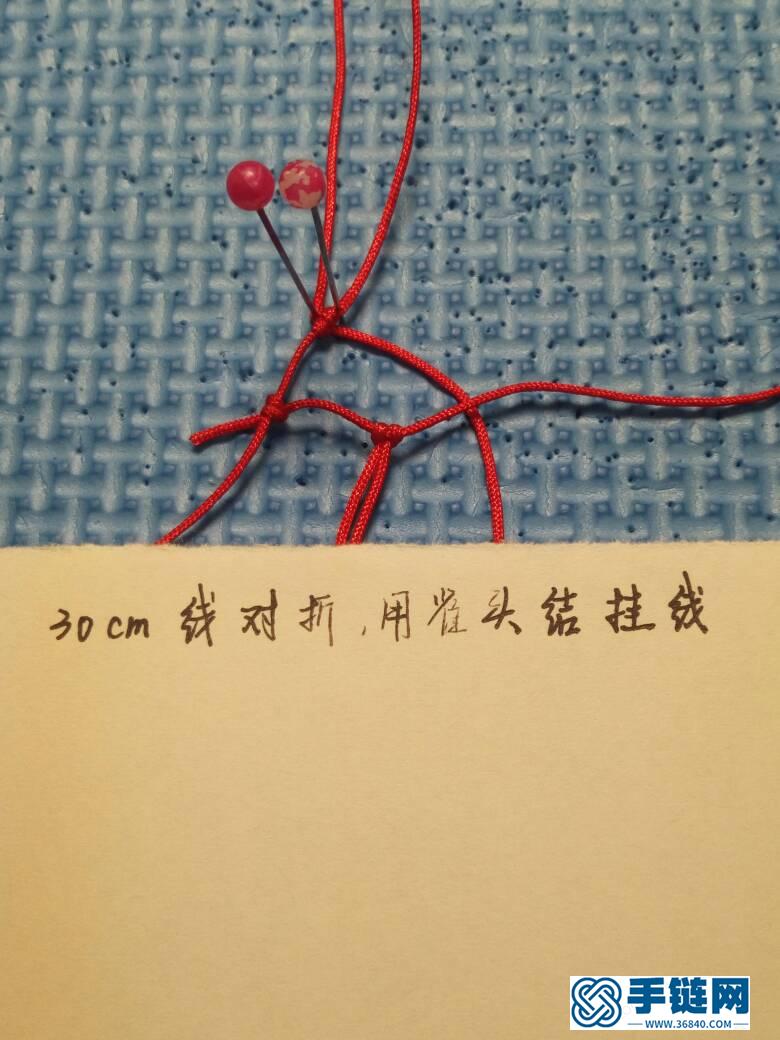 30cm 线对折,用雀头结挂线
手链网
WWW.36840.COM